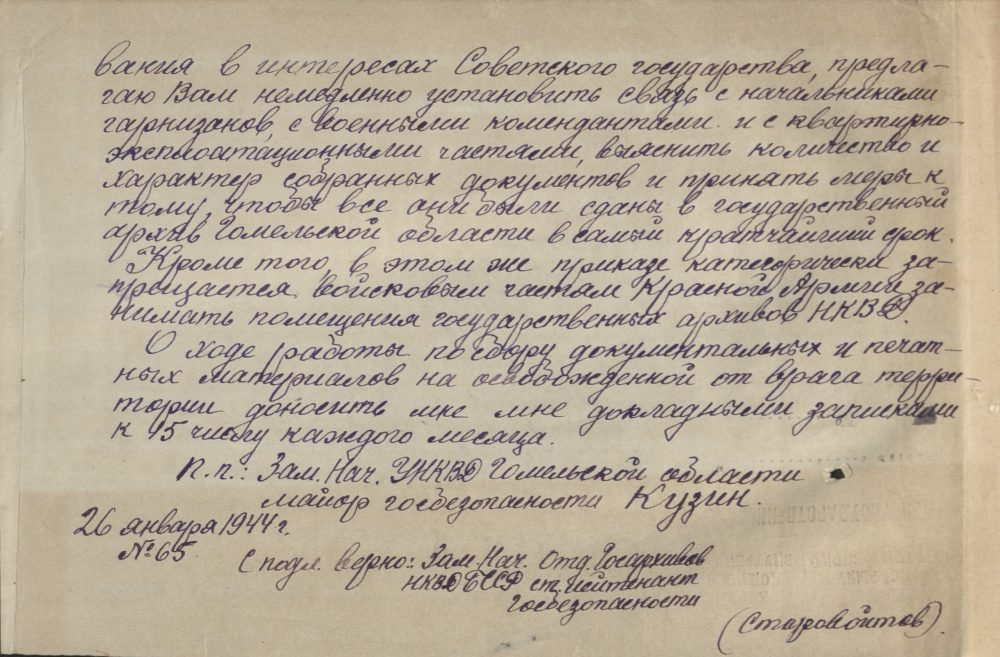 вания в интересах Советского государства, предла-
гаю Вам немедленно установить связь с начальниками
гарнизанов, с военными комендантами и с квартирно-
эксплоатационными частями, выяснить количество и
характер собранных документов и принять меры к
тому, чтобы все они были сданы в государственный
архив Гомельской области в самый кратчайший срок.
Кроме того, в этом же приказе категорически за-
прещается войсковым частям Красной Армии за-
нимать помещения государственных архивов НКВД.
О ходе работы по сбору документальных и печат-
ных материалов на освобожденной от врага терри-
тории доносить мне мне докладными записками
к 15 числу каждого месяца.
П.п.: Зам. Нач. УНКВД Гомельской области
майор госбезопасности Кузин.
26 января 1944 г.
№ 65
С подл. верно: Зам. Нач. Отд. Госархивов
НКВД БССР ст. лейтенант
госбезопасности
(Старовойтов).